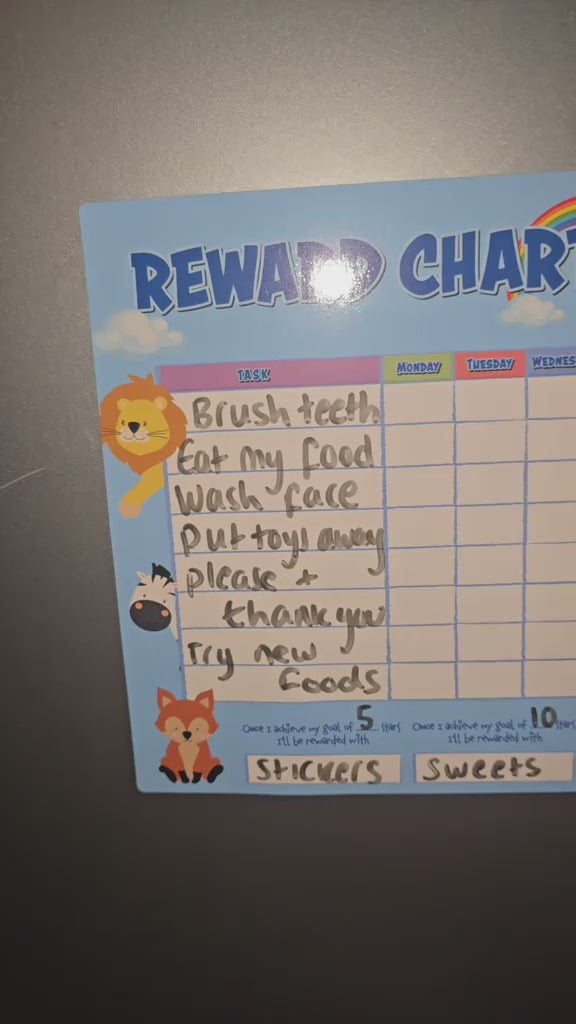 REWARD CHART
TASK MONDAY TUESDAY WEDNES
Brush teeth
Eat my food
Wash face
Put toys away
please +
thank you
Try new
foods
Once I achieve my goal of 5 stars
I'll be rewarded with
Stickers
Once I achieve my goal of 10 stars
I'll be rewarded with
Sweets